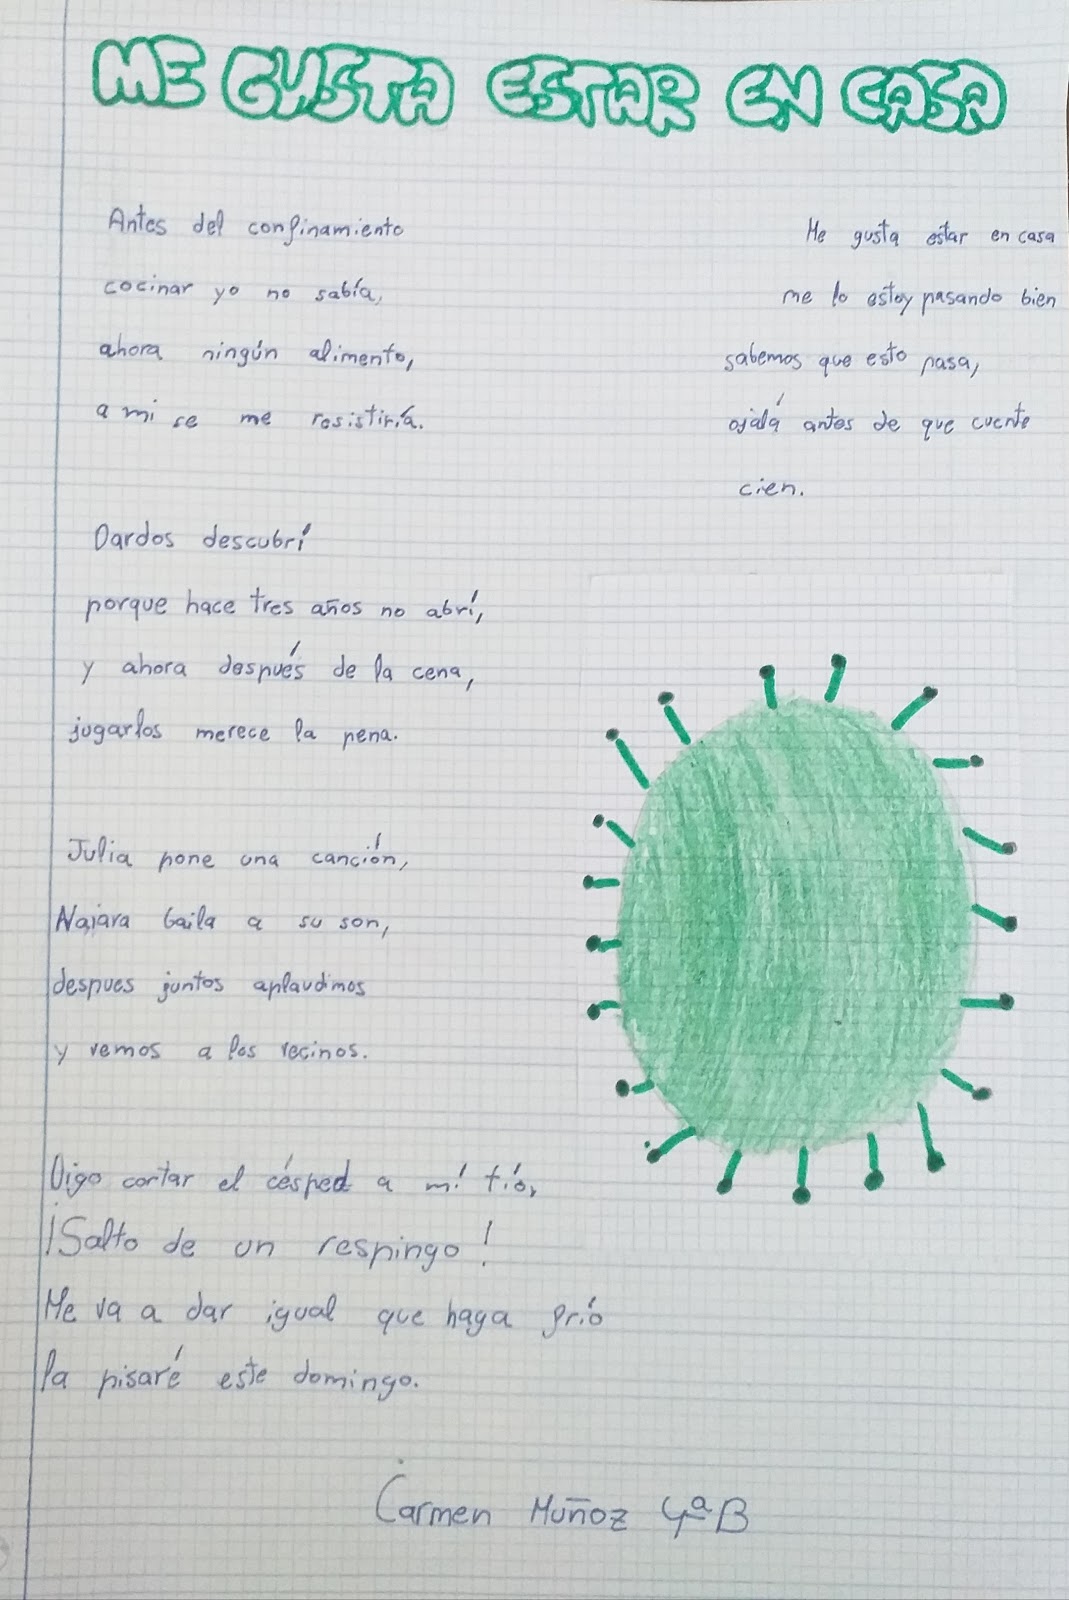 ME GUSTA ESTAR EN CASA
Antes del confinamiento
cocinar yo no sabía,
ahora ningún alimento,
a mi se me resistiría.
Dardos descubrí
porque hace tres años no abrí,
y ahora después de la cena,
jugarlos merece la pena.
Julia pone una canción,
Naiara baila a su son,
despues juntos aplaudimos
y vemos a los vecinos.
Oigo cortar el césped a mí tío,
¡Salto de un respingo!
Me va a dar igual que haga frío
la pisaré este domingo.
Me gusta estar en casa
me lo estoy pasando bien
sabemos que esto pasa,
ojalá antes de que cuente
cien.
Carmen Muñoz 4ºB